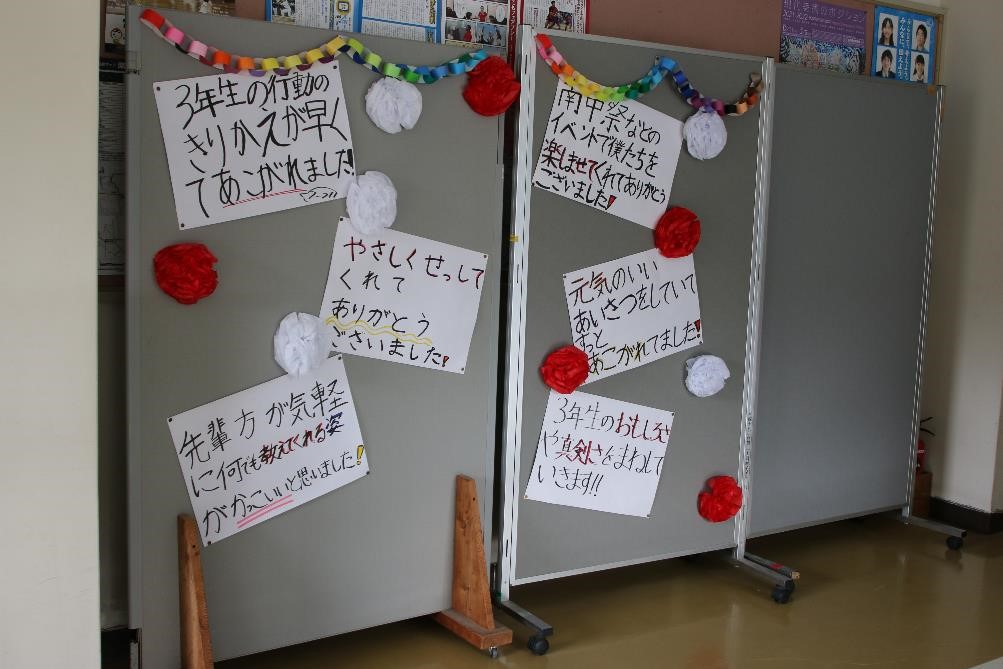 3年生の行動の
きりかえが早く
てあこがれました!
やさしくせっして
くれて
ありがとう
ございました!
先輩方が気軽
に何でも教えてくれる姿
がかっこいいと思いました!
南中祭などの
イベントで僕たちを
楽しませてくれてありがとう
ございました!
元気のいい
あいさつをしていて
ずっと
あこがれてました!
3年生のおもしろさ
や真剣さをまねして
いきます!!